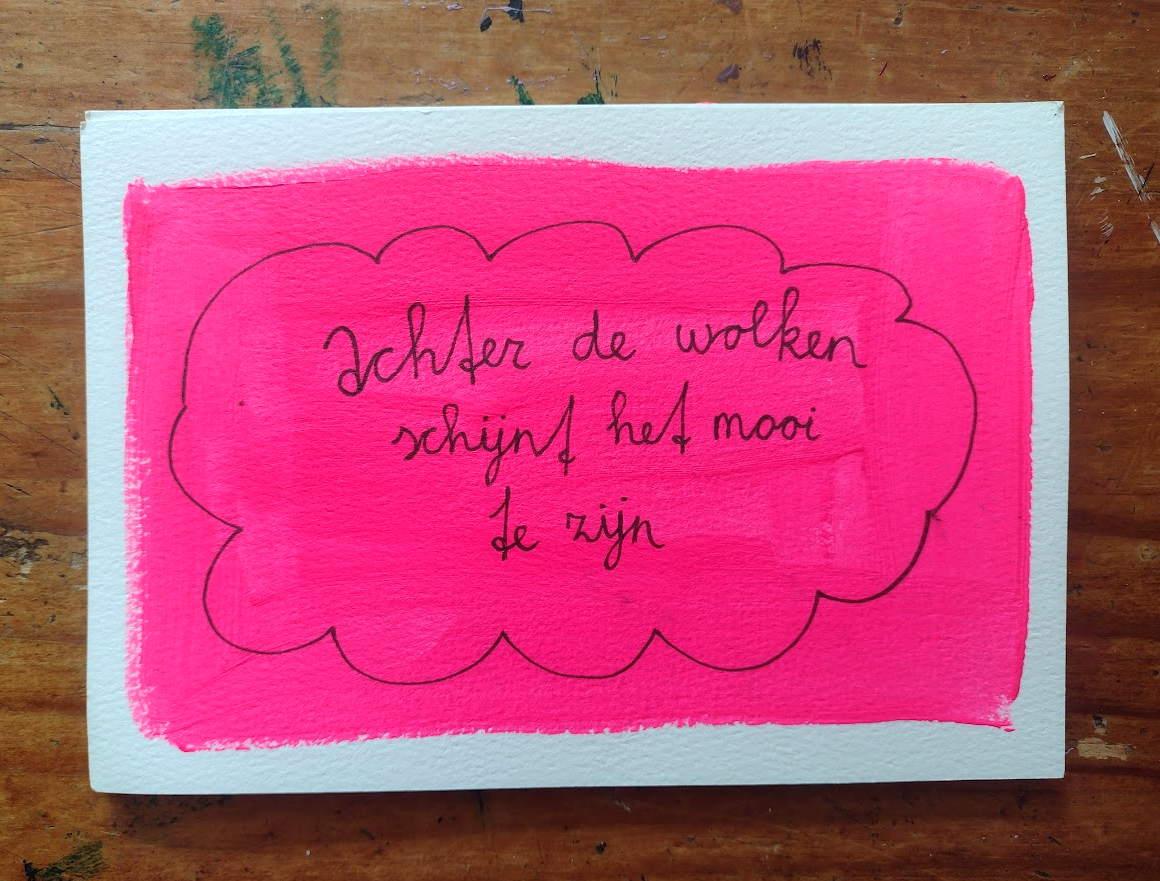 Achter de wolken
schijnt het mooi
te zijn